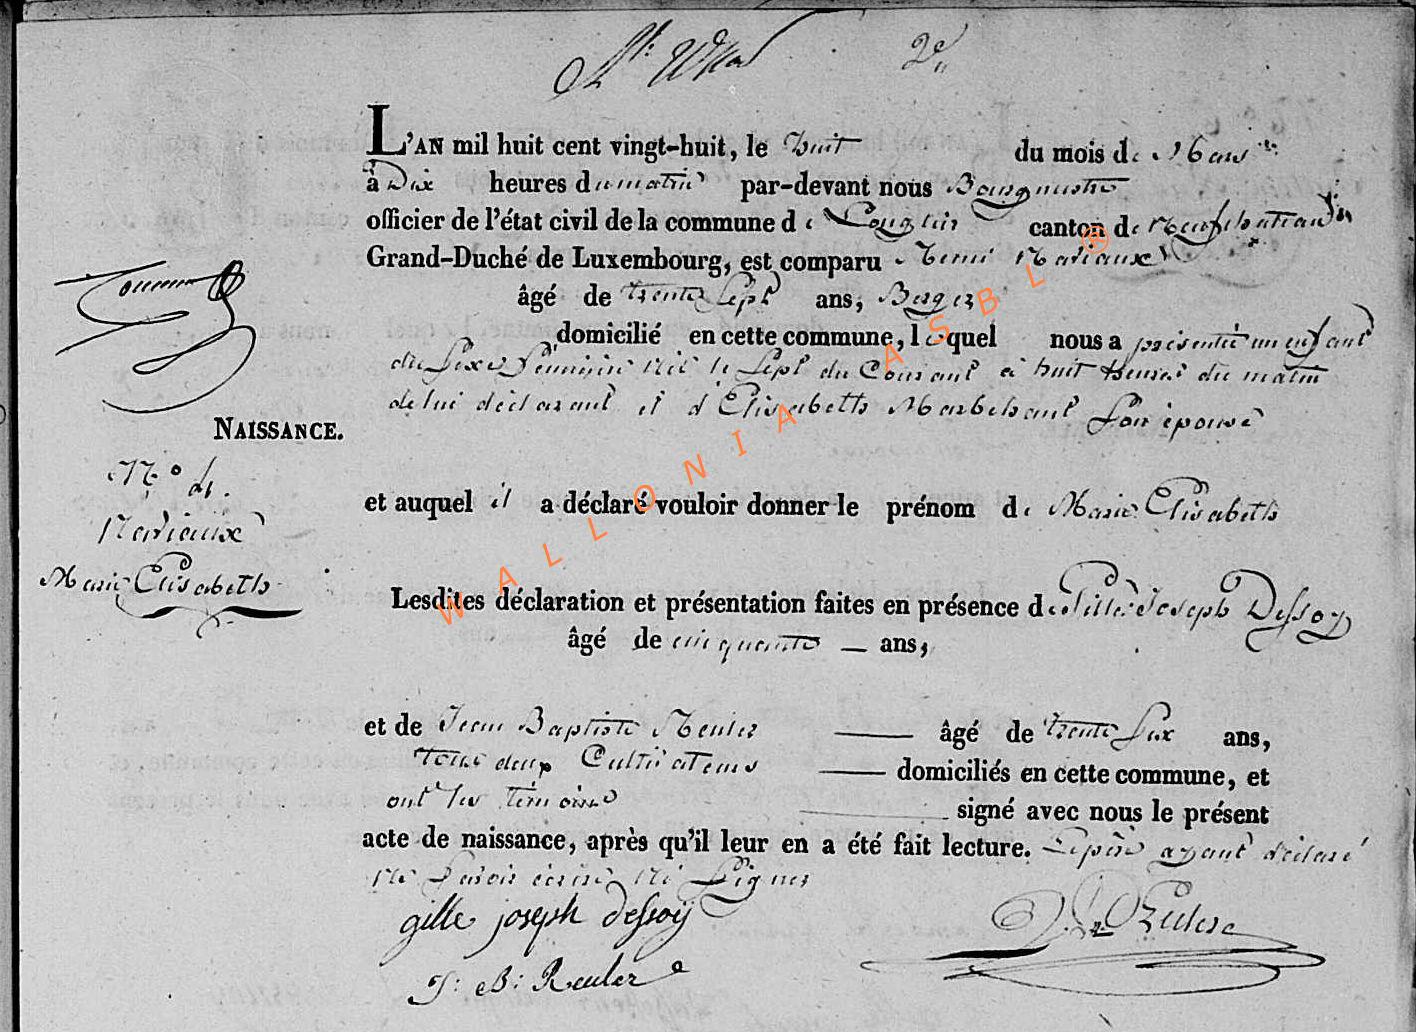 2e
L'AN mil huit cent vingt-huit, le huit du mois de Mars
à Dix heures du matin par-devant nous Bourgmestre
officier de l'état civil de la commune de Longlier canton de Neufchateau
Grand-Duché de Luxembourg, est comparu Henri Naviaux
âgé de trente Sept ans, Berger
domicilié en cette commune, lequel nous a présenté un enfant
du Sexe Féminin né le Sept du Courant à huit heures du matin
de lui déclarant et d'Elisabeth Marbehant Son épouse
NAISSANCE.
N.º 4.
Naviaux
Marie Elisabeth
et auquel il a déclaré vouloir donner le prénom de Marie Elisabeth
Lesdites déclaration et présentation faites en présence de Gille Joseph Dessoy
âgé de cinquante ans,
et de Jean Baptiste Reuler âgé de trente Six ans,
tous deux Cultivateurs domiciliés en cette commune, et
ont les témoins signé avec nous le présent
acte de naissance, après qu'il leur en a été fait lecture. Le père ayant déclaré
ne Savoir écrire ni Signer
gille joseph dessoÿ
J: B: Reuler
WALLONIA ASBL ®